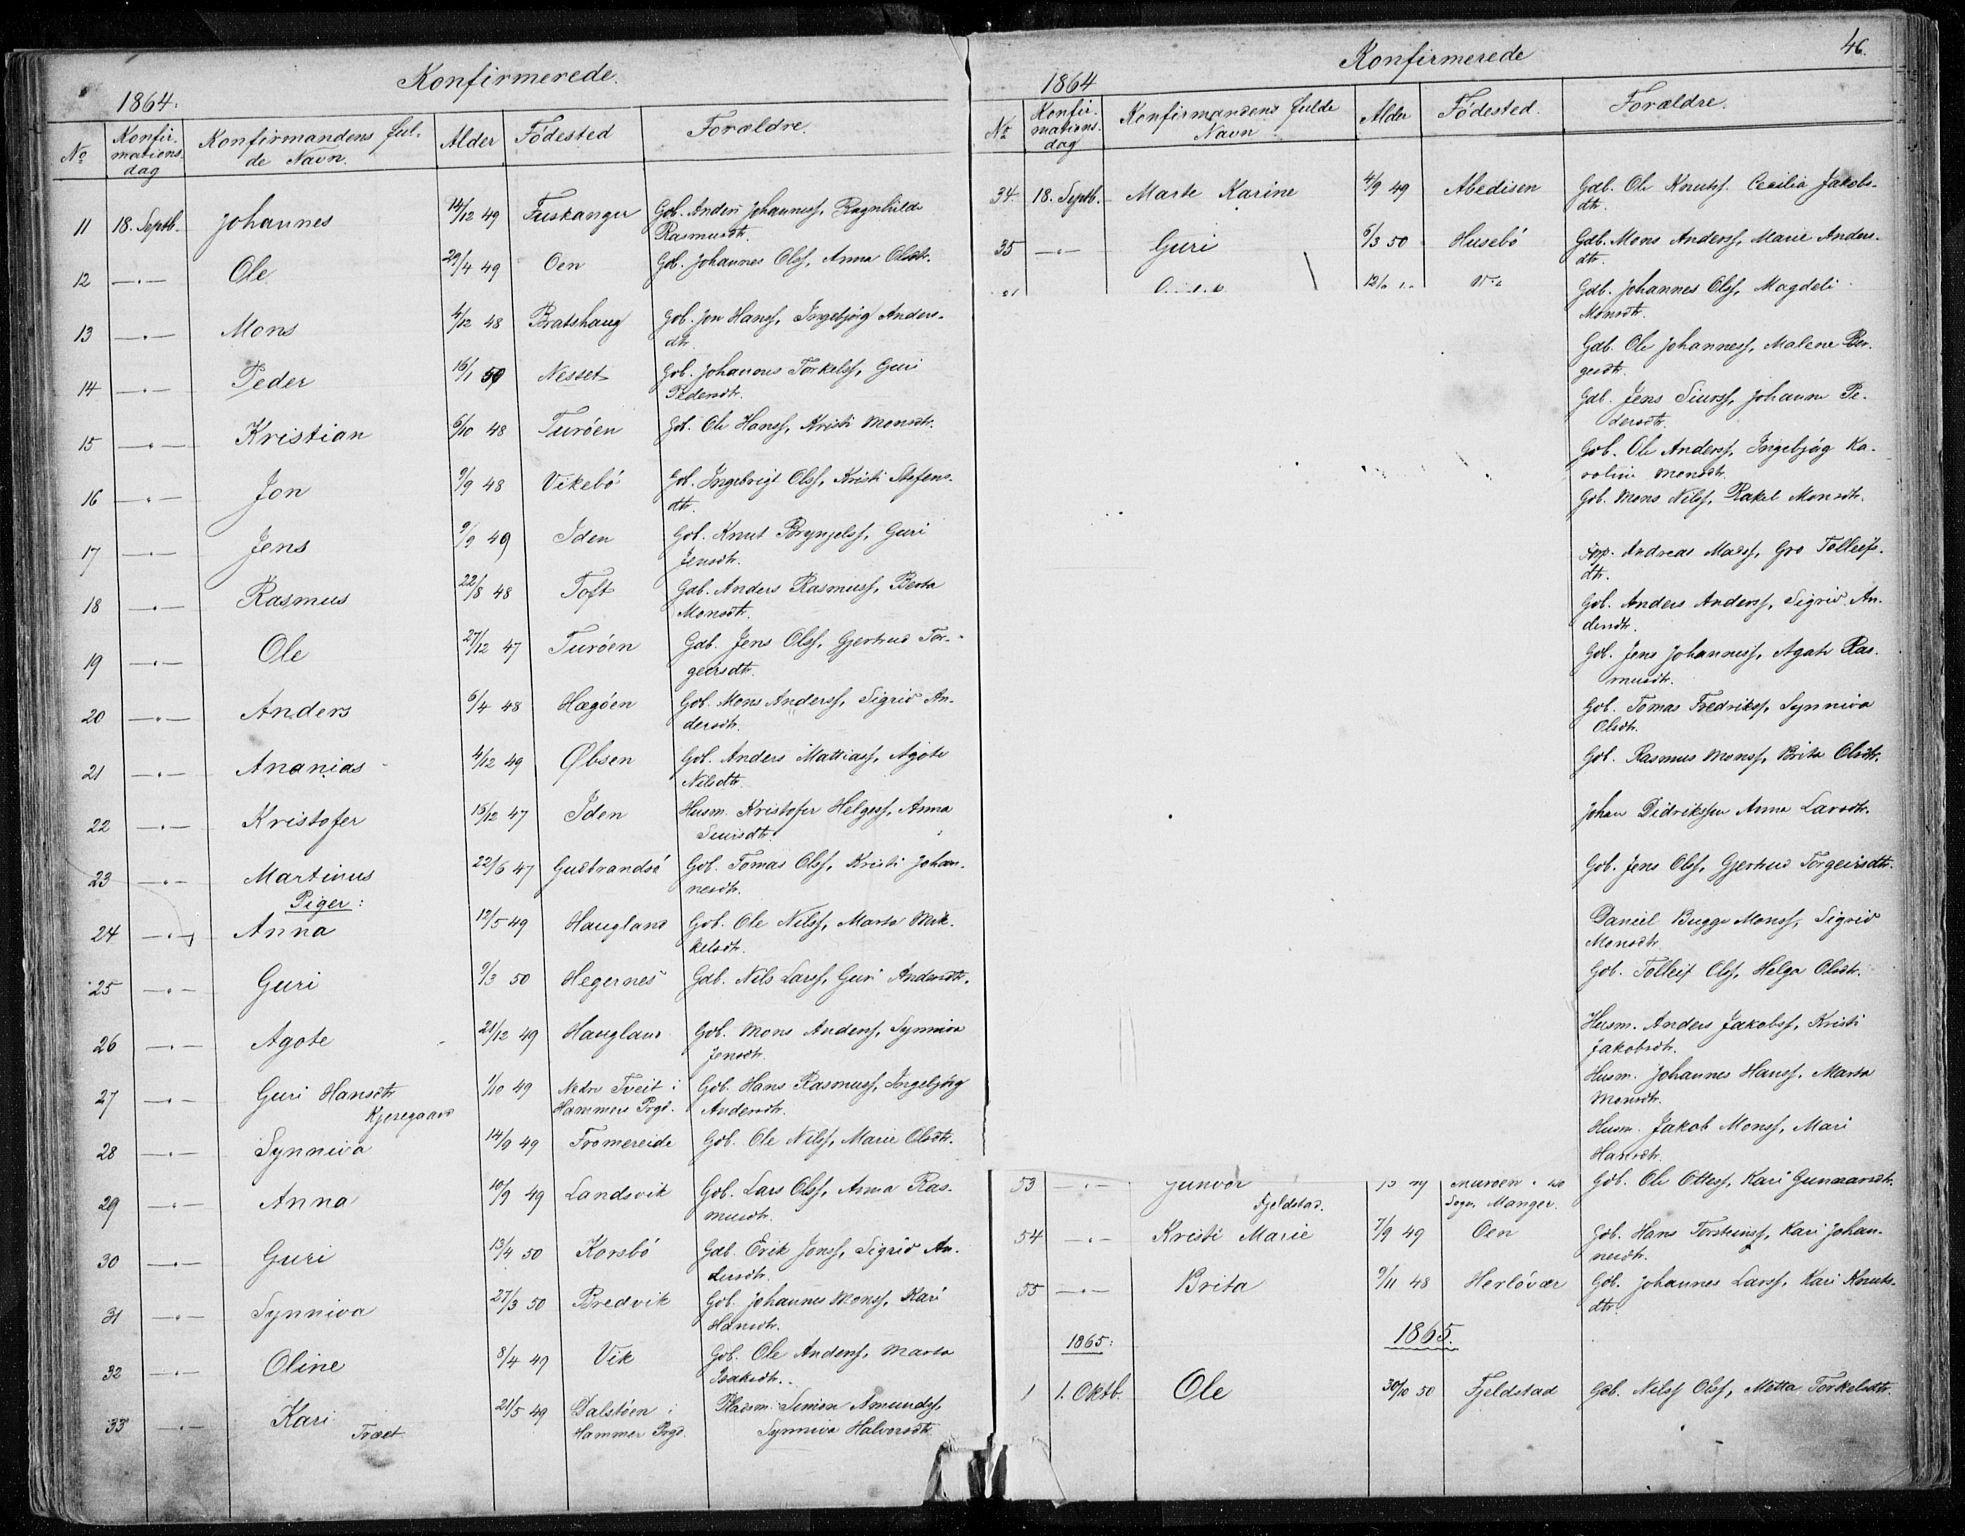 Konfirmerede.
1864.
No Konfirmationsdag Konfirmandens fulde Navn. Alder Födested Forældre.
11 18. Septb. Johannes 14/12 49 Fuskanger Gdb. Anders Johannesf, Ragnhilde
Rasmusdtr.
12 —„— Ole 29/4 49 Oen Gdb. Johannes Olsf, Anna Olsdtr.
13 —„— Mons 4/12 48 Bratshaug Gdb. Jon Hansf, Ingebjög Anders-
dtr.
14 —„— Peder 16/1 50 Nesset Gdb. Johannes Torkelsf, Guri
Pedersdtr.
15 —„— Kristian 6/10 48 Turöen Gdb. Ole Hansf, Kristi Monsdtr.
16 —„— Jon 9/9 48 Vikebö Gdb. Ingebrigt Olsf, Kristi Stefens-
dtr.
17 —„— Jens 9/9 49 Iden Gdb. Knut Brynjelsf, Guri
Jensdtr.
18 —„— Rasmus 22/8 48 Toft Gdb. Anders Rasmusf, Berta
Monsdtr.
19 —„— Ole 27/12 47 Turöen Gdb. Jens Olsf, Gjertrud Tor-
geirsdtr.
20 —„— Anders 6/4 48 Hægöen Gdb. Mons Andersf, Sigrid An-
dersdtr.
21 —„— Ananias 4/12 49 Øbsen Gdb. Anders Mattiasf, Agote
Nilsdtr.
22 —„— Kristofer 15/12 47 Iden Husm. Kristofer Helgesf, Anna
Siursdtr.
23 —„— Martinus 22/6 47 Gudbrandsö Gdb. Tomas Olsf, Kristi Johan-
nesdtr.
Piger:
24 —„— Anna 12/5 49 Haugland Gdb. Ole Nilsf, Marta Mik-
kelsdtr.
25 —„— Guri 9/3 50 Hegernes Gdb. Nils Larsf, Guri Andersdtr.
26 —„— Agote 21/12 49 Haugland Gdb. Mons Andersf, Synniva
Jensdtr.
27 —„— Guri Hansdtr 1/10 49 Nedre Tveit i Gdb. Hans Rasmusf, Ingebjög
Kjeregaard Hammers Prgd. Andersdtr.
28 —„— Synniva 14/9 49 Fromereide Gdb. Ole Nilsf, Marie Olsdtr.
29 —„— Anna 10/9 49 Landsvik Gdb. Lars Olsf, Anna Ras-
musdtr.
30 —„— Guri 13/4 50 Korsbö Gdb. Erik Jonsf, Sigrid An-
dersdtr.
31 —„— Synniva 27/3 50 Bredvik Gdb. Johannes Monsf, Kari
Hansdtr.
32 —„— Oline 8/4 49 Vik Gdb. Ole Andersf, Marta
Isaksdtr.
33 —„— Kari 21/5 49 Dalstöen i Pladsm. Simon Amundsf,
Træet Hammer Prgd. Synniva Halvorsdtr.
Konfirmerede
46.
1864
No Konfirmationsdag Konfirmandens fulde Navn Alder Födested. Forældre.
34 18. Septb. Marte Karine 4/9 49 Abedisen Gdb. Ole Knutsf. Cecilia Jakobs-
dtr.
35 —„— Guri 6/3 50 Husebö Gdb. Mons Andersf, Marie Anders-
dtr.
Gdb. Johannes Olsf, Magdeli
Monsdtr.
Gdb. Ole Johannesf, Malene Bør-
gesdtr.
Gdb. Jens Siursf, Johanna Pe-
dersdtr.
Gdb. Ole Andersf, Ingebjög Ka-
roline Monsdtr.
Gdb. Mons Nilsf, Rakel Monsdtr.
Andreas Madsf, Gro Tolleifs-
dtr.
Gdb. Anders Andersf, Sigrid An-
dersdtr.
Gdb. Jens Johannesf, Agate Ras-
musdtr.
Gdb. Tomas Fredriksf, Synniva
Olsdtr.
Gdb. Rasmus Monsf, Brita Olsdtr.
Johan Didriksen Anna Larsdtr.
Gdb. Jens Olsf, Gjertrud Torgeirsdtr.
Daniel Bugge Monsf, Sigrid
Monsdtr.
Gdb. Tolleif Olsf, Helga Olsdtr.
Husm. Anders Jakobsf, Kristi
Jakobsdtr.
Husm. Johannes Hansf, Marta
Monsdtr.
Husm. Jakob Monsf, Mari
Hansdtr.
53 —„— Gunvor Gdb. Ole Ottesf, Kari Gunnarsdtr.
Fjeldstad. Sogn, Manger.
54 —„— Kristi Marie 7/9 49 Oen Gdb. Hans Torsteinsf, Kari Johan-
nesdtr.
55 —„— Brita 9/11 48 Herlövær Gdb. Johannes Larsf, Kari Knuts-
dtr.
1865: 1865.
1 1. Oktb. Ole 30/10 50 Fjeldstad Gdb. Nils Olsf, Metta Torkelsdtr.